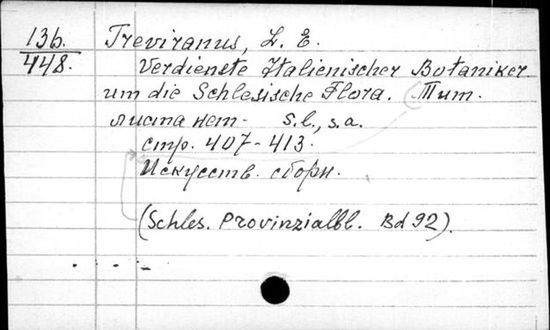 13b.
448.
Treviranus, L. E.
Verdienste Italienischer Botaniker
um die Schlesische Flora. Тит.
листа нет- S.l., s.a.
стр. 407-413.
Искусств. сборн.
(Schles. Provinzialbl. Bd 92).